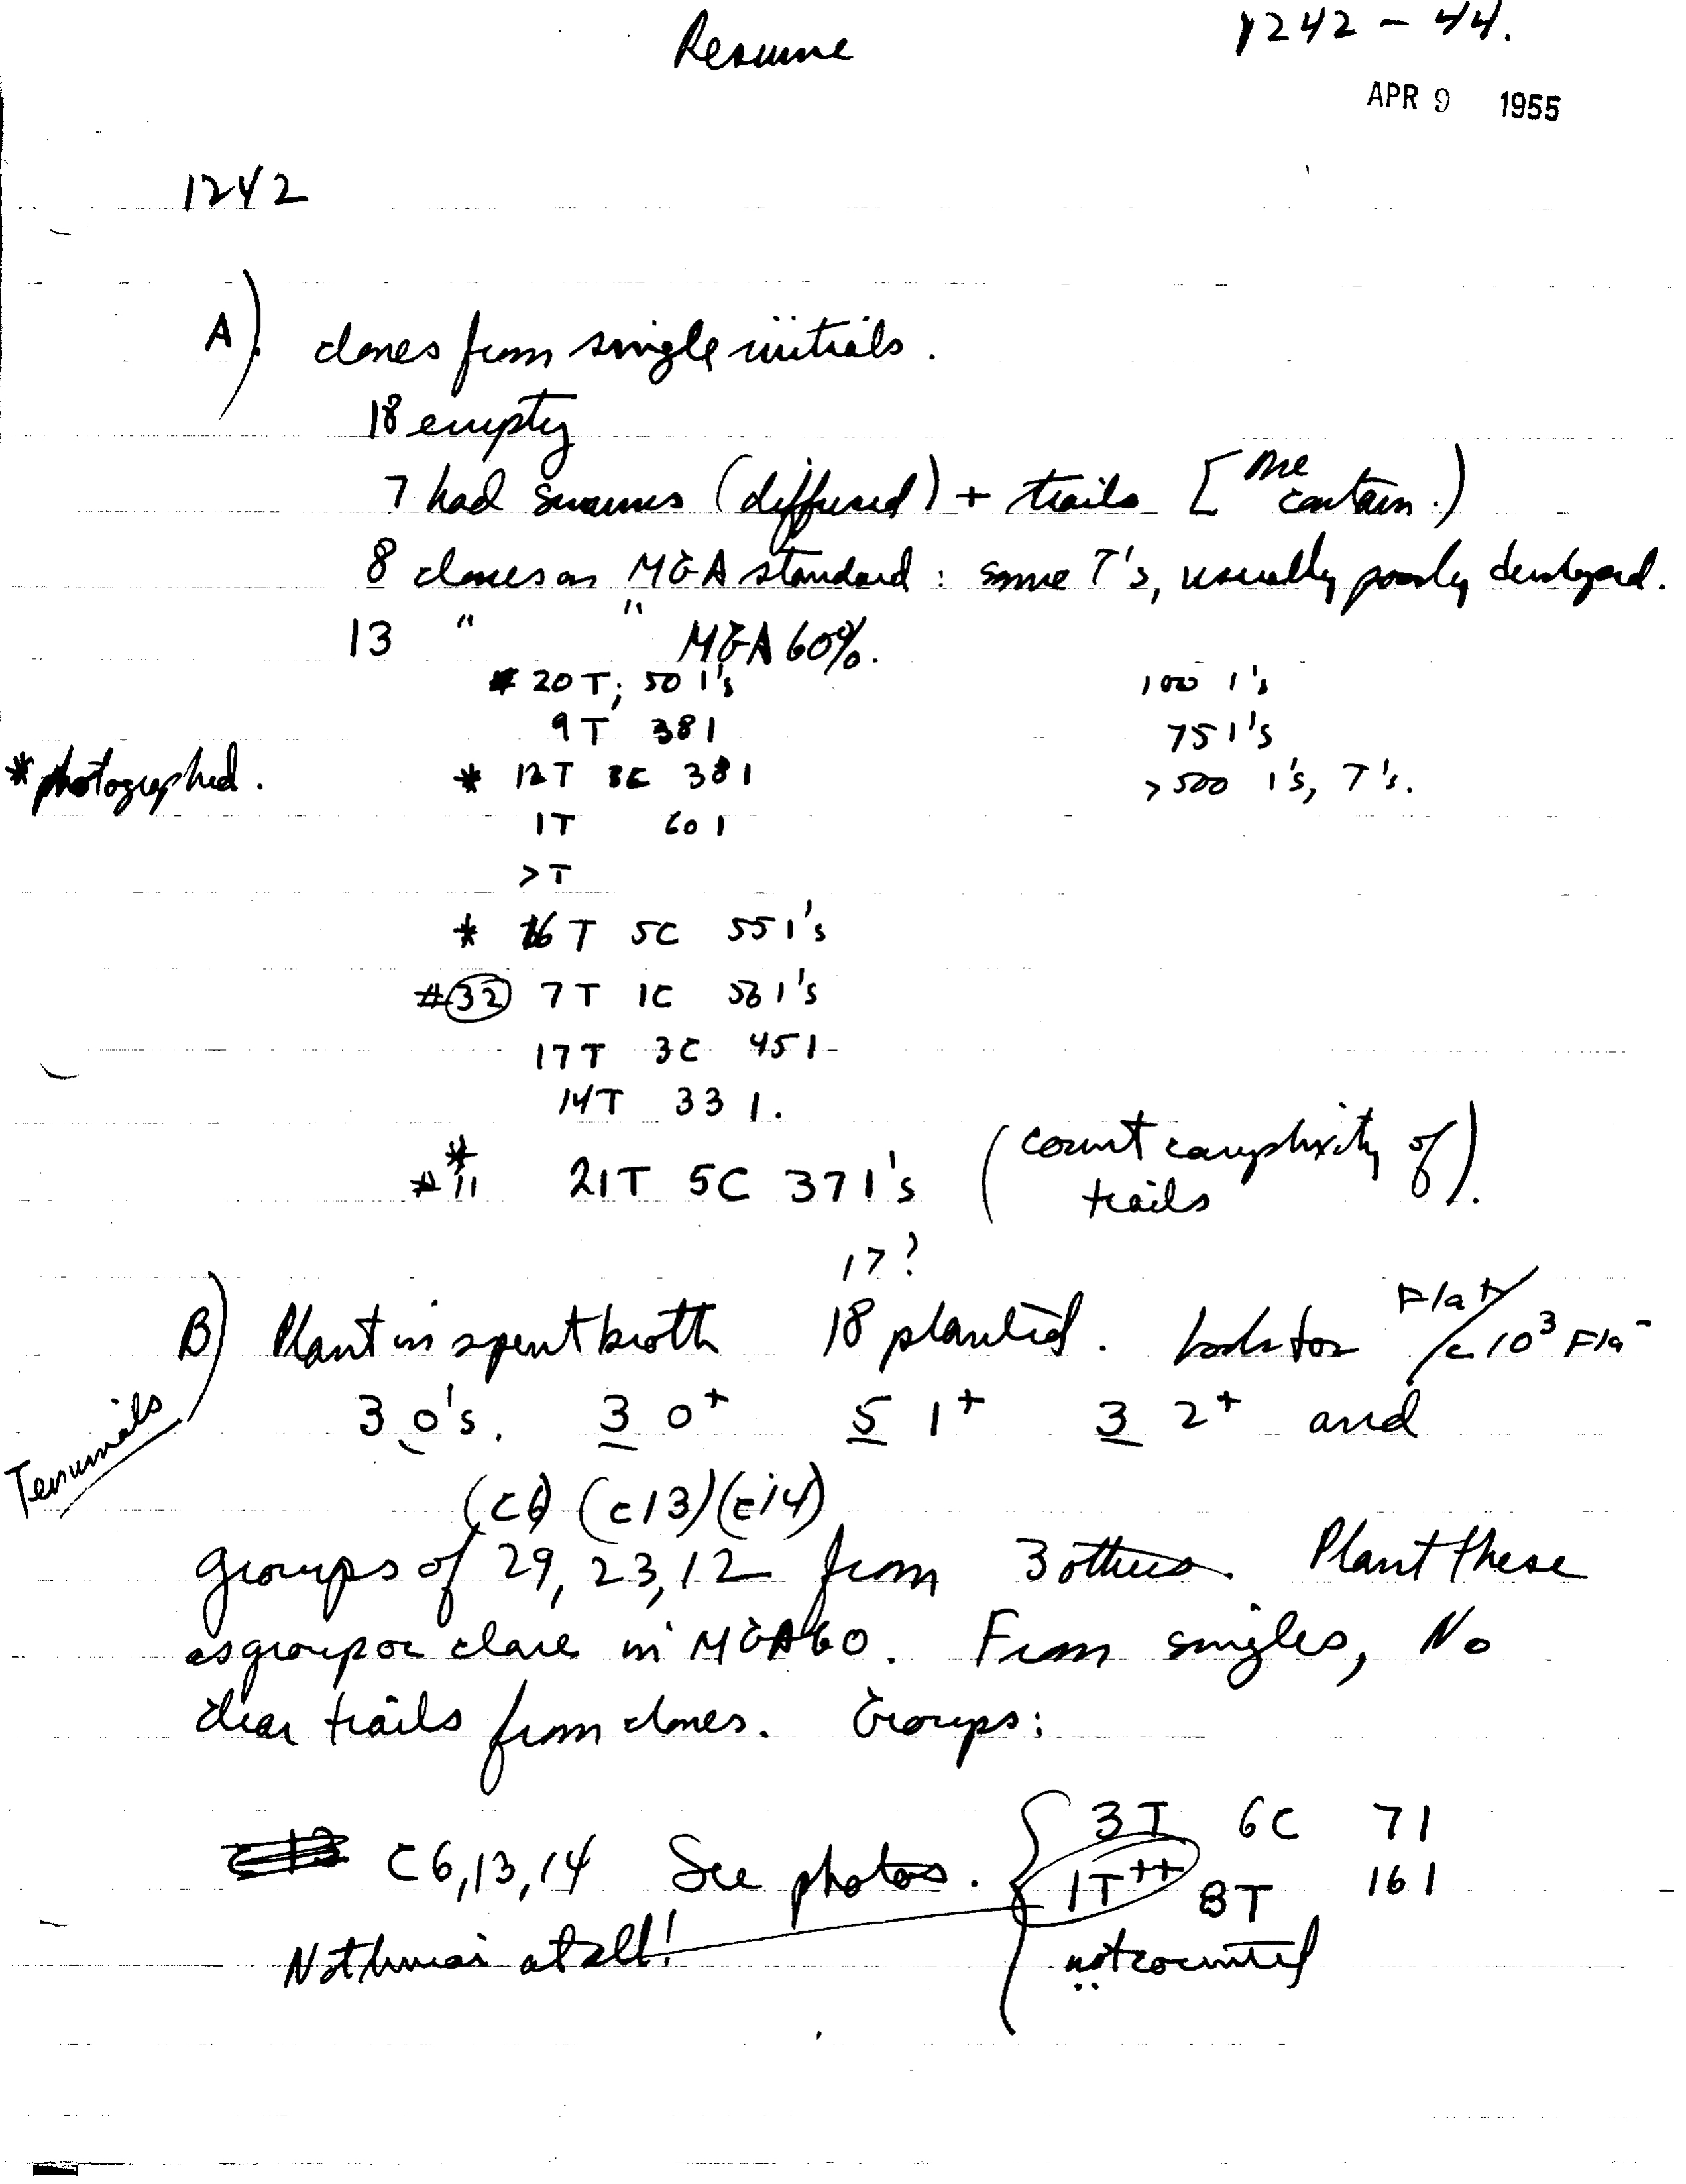 Resume
1242 - 44.
APR 9 1955
1242
A) clones from single initials.
18 empty
7 had swarms (diffused) + trails [one contam.)
8 clones on MGA standard: some T's, usually poorly developed.
13 " " MGA 60%.
* 20 T; 50 1's
100 1's
9T 38 1
75 1's
* photographed.
* 12T 3C 38 1
>500 1's, T's.
1T 60 1
>T
* 16 T 5C 55 1's
#32 7T 1C 1's
17T 3C 45 1
14T 33 1.
* #11 21T 5C 37 1's (count complexity of trails).
17?
B) Plant in spent broth 18 planted. Look for Fla+/c 10³ Fla-
Terminals
3 0's. 3 0+ 5 1+ 3 2+ and
(c6) (c13) (c14)
groups of 29, 23, 12 from 3 others. Plant these
as group or clone in MGA60. From singles, No
clear trails from clones. Groups:
C6, 13, 14 See photos.
3T 6C 7 1
1T++ 8T 16 1
not counted
at all!